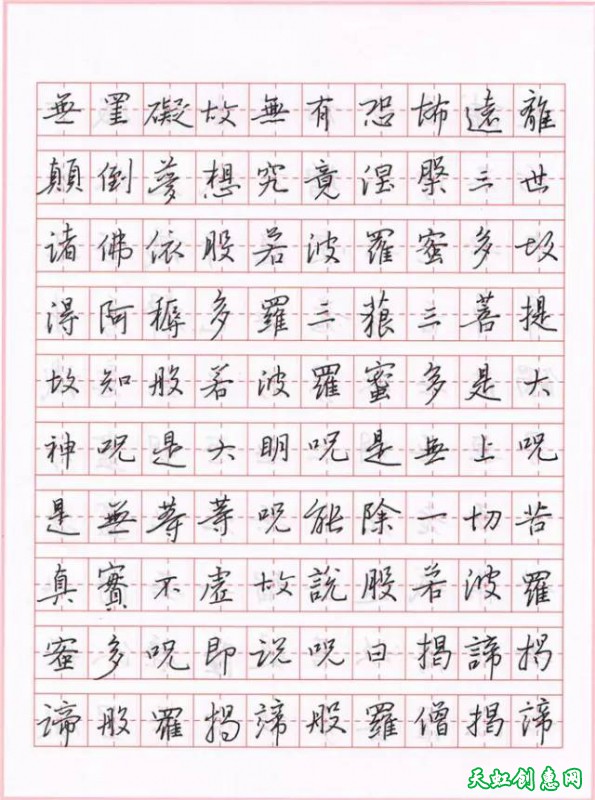 無罣礙故無有恐怖遠離
顛倒夢想究竟涅槃三世
诸佛依般若波羅蜜多故
得阿耨多羅三藐三菩提
故知般若波羅蜜多是大
神呪是大明呪是無上呪
是無等等呪能除一切苦
真實不虛故說般若波羅
蜜多呪即说呪曰揭諦揭
諦般羅揭諦般羅僧揭諦
天虹创意网